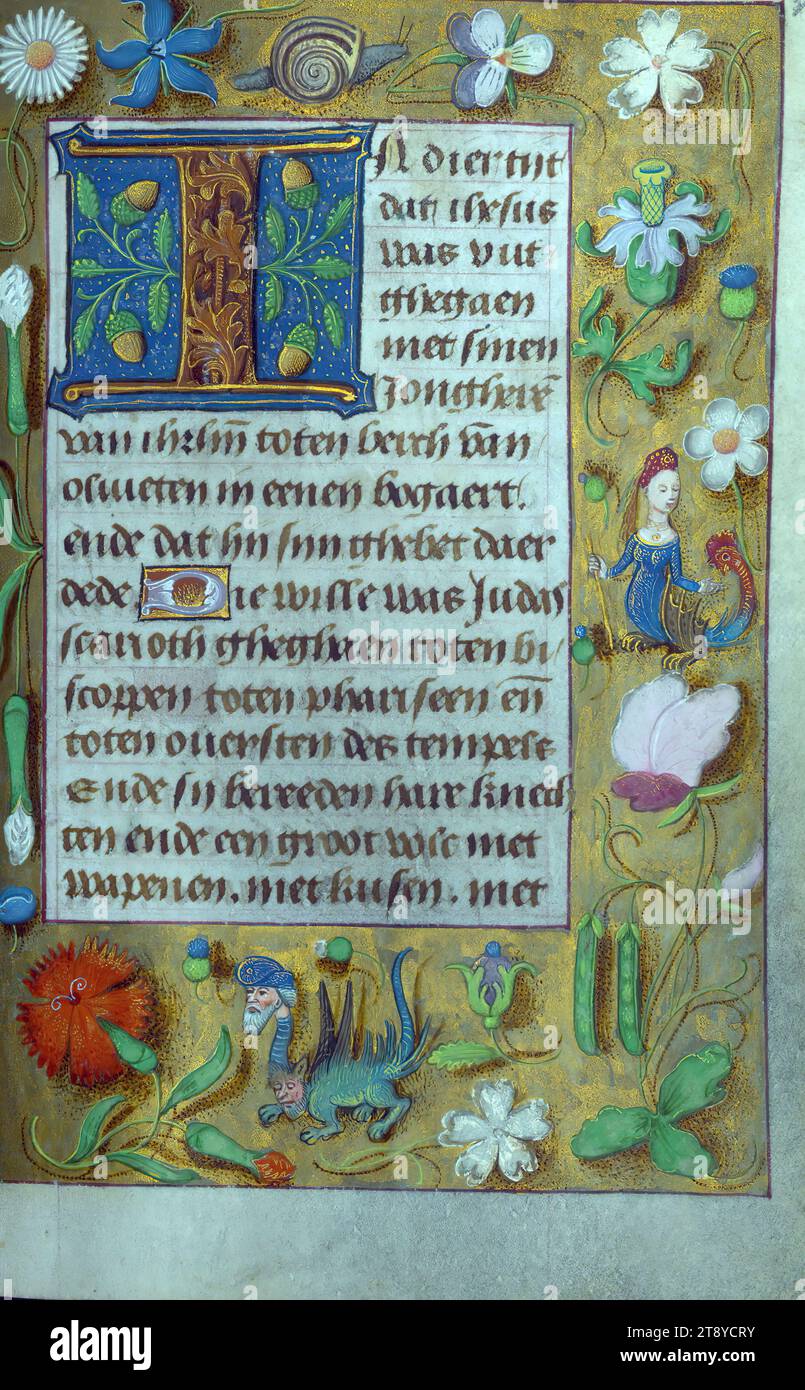 IN dier tijt
dat ihesus
was vut
ghegaen
met sinen
Jongherē
van ihrlm̄ toten berch vā
olyueten in eenen bogaert.
ende dat hij sijn ghebet daer
dede Die wille was Judas
scarioth gheghaen toten bi
scoppen toten phariseen eñ
toten ouersten des tempels
Ende sij bereeden hare knech
ten ende een groot volc met
wapenen. met kuisen. met
alamy
Image ID: 2T8YCRY
www.alamy.com